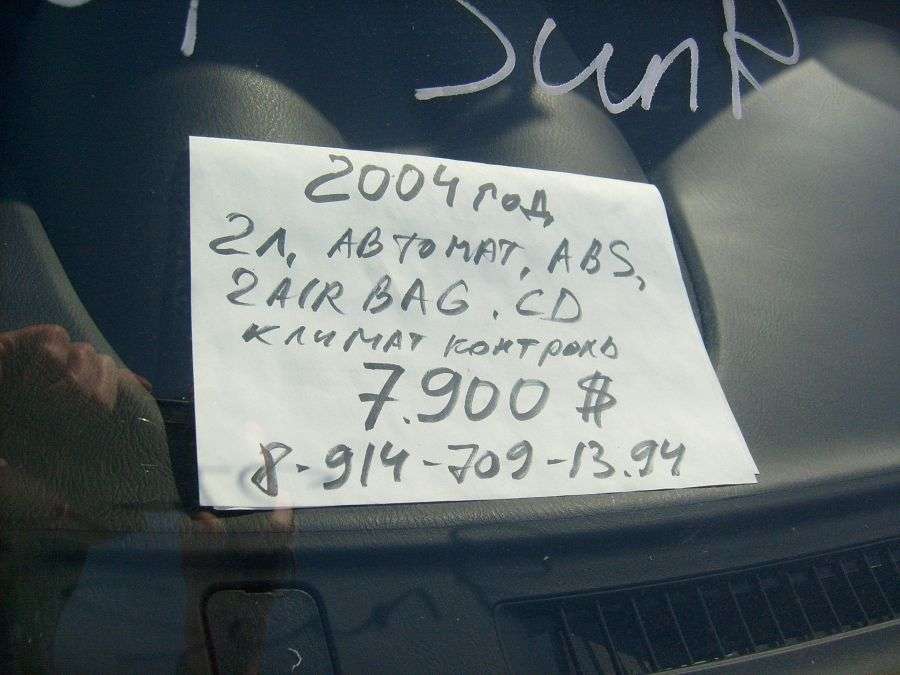 SunR
2004 год
2л, АВТОМАТ, ABS,
2AIR BAG. CD
КЛИМАТ КОНТРОЛЬ
7.900 $
8-914-709-13.94